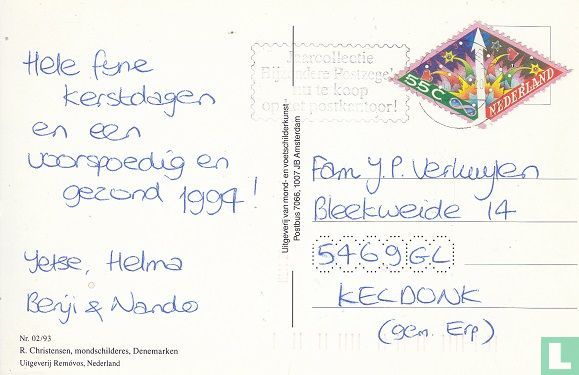 Hele fyne
kerstdagen
en een
voorspoedig en
gezond 1994!
Jetse, Helma
Benji & Nando
Nr. 02/93
R. Christensen, mondschilderes, Denemarken
Uitgeverij Removos, Nederland
Uitgeverij van mond- en voetschilderkunst -
Postbus 7066, 1007 JB Amsterdam
Jaarcollectie
Bijzondere Postzegels
nu te koop
op het postkantoor!
55c
NEDERLAND
Fam J.P. Verkuylen
Bleekweide 14
5469GL
KELDONK
(gem. Erp)
L